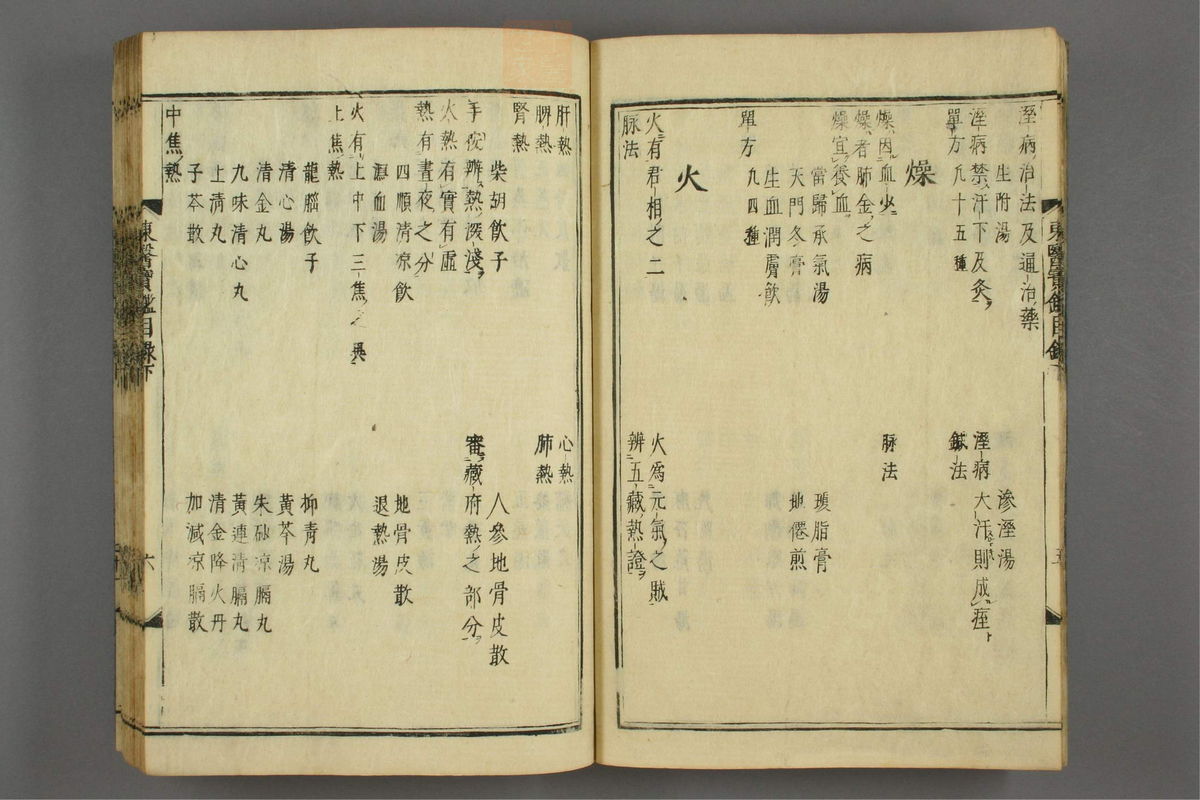 湿病治法及通治藥
生附湯
滲湿湯
湿病禁汗下及灸
湿病大汗則成痓
單方 凡十五種
鍼法
燥
燥因血少
脉法
燥者肺金之病
燥宜養血
當歸承氣湯
瓊脂膏
天門冬膏
地僊煎
生血潤膚飲
單方 凡四種
火
火有君相之二
火爲元氣之賊
脉法
辨五藏熱證
肝熱
心熱
脾熱
肺熱
腎熱
柴胡飲子
人參地骨皮散
手按辨熱深淺
審藏府熱之部分
火熱有實有虛
熱有晝夜之分
四順清凉飲
地骨皮散
退熱湯
火有上中下三焦之異
上焦熱
龍腦飲子
抑青丸
清心湯
黄芩湯
清金丸
朱砂凉膈丸
九味清心丸
黄連清膈丸
上清丸
清金降火丹
子芩散
加減凉膈散
中焦熱
東醫寶鑑目錄下
六